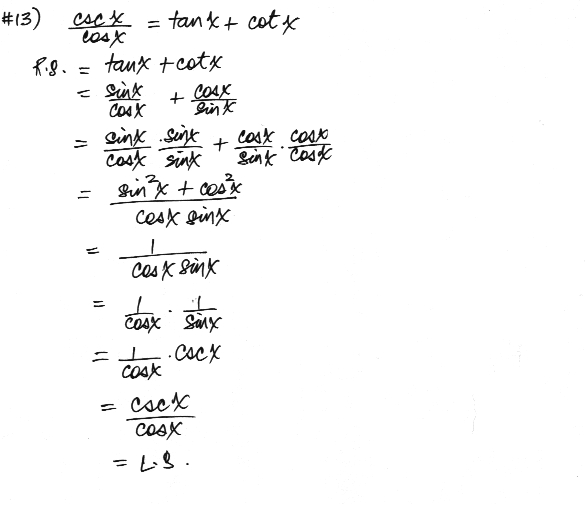 #13) csc x / cos x = tan x + cot x
R.S. = tan x + cot x
= sin x / cos x + cos x / sin x
= sin x / cos x · sin x / sin x + cos x / sin x · cos x / cos x
= sin²x + cos²x / cos x sin x
= 1 / cos x sin x
= 1 / cos x · 1 / sin x
= 1 / cos x · csc x
= csc x / cos x
= L.S.